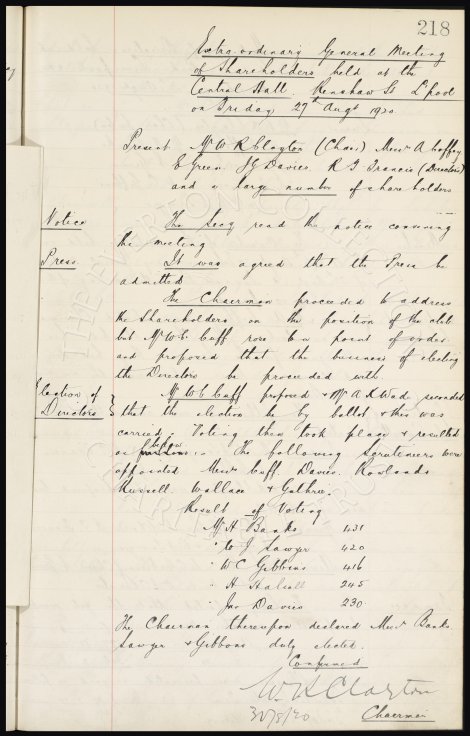 218
Extra-ordinary General Meeting
of Shareholders held at the
Central Hall. Renshaw St L'pool
on Friday 27th Augt 1920
Present Mr W R Clayton (Chair) Messrs A Coffey
E Green J G Davies R T Francis (Directors)
and a large number of shareholders
Notice
The Secy read the notice convening
the meeting
Press
It was agreed that the Press be
admitted
The Chairman proceeded to address
the Shareholders on the position of the club
but Mr W C Cuff rose to a point of order
and proposed that the business of electing
the Directors be proceeded with.
Election of
Directors
Mr W C Cuff proposed & Mr A R Wade seconded
that the election be by ballot & this was
carried. Voting then took place & resulted
as below :- The following scrutineers were
appointed Messrs Cuff. Davies. Rowlands
Russell. Wallace & Guthrie.
Result of Voting
Mr H Banks 431
" W J Sawyer 420
" W C Gibbins 416
" H Halsall 245
" Jno Davies 230
The Chairman thereupon declared Messrs Banks
Sawyer & Gibbons duly elected.
Confirmed
W R Clayton
31/8/20
Chairman
THE EVERTON COLLECTION
CHARITABLE TRUST